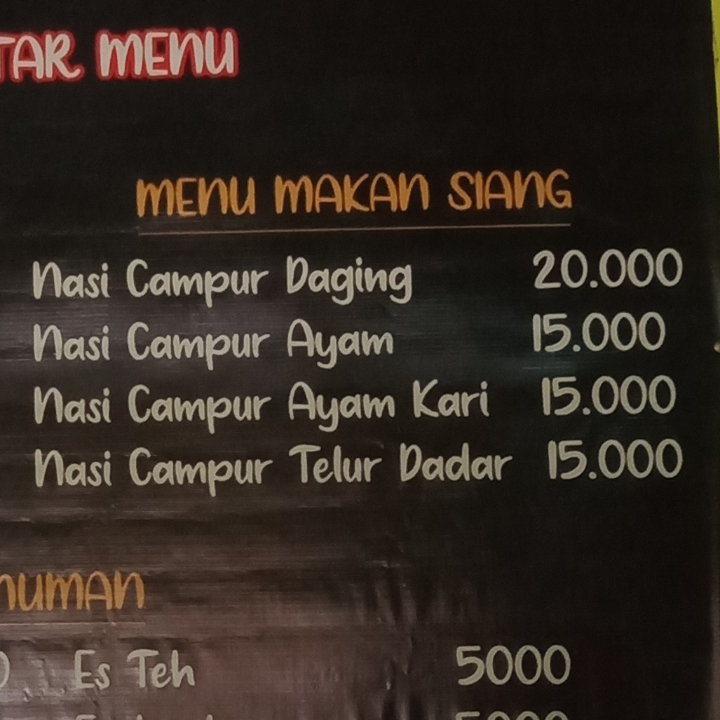 TAR MENU
MENU MAKAN SIANG
Nasi Campur Daging 20.000
Nasi Campur Ayam 15.000
Nasi Campur Ayam Kari 15.000
Nasi Campur Telur Dadar 15.000
NUMAN
Es Teh 5000